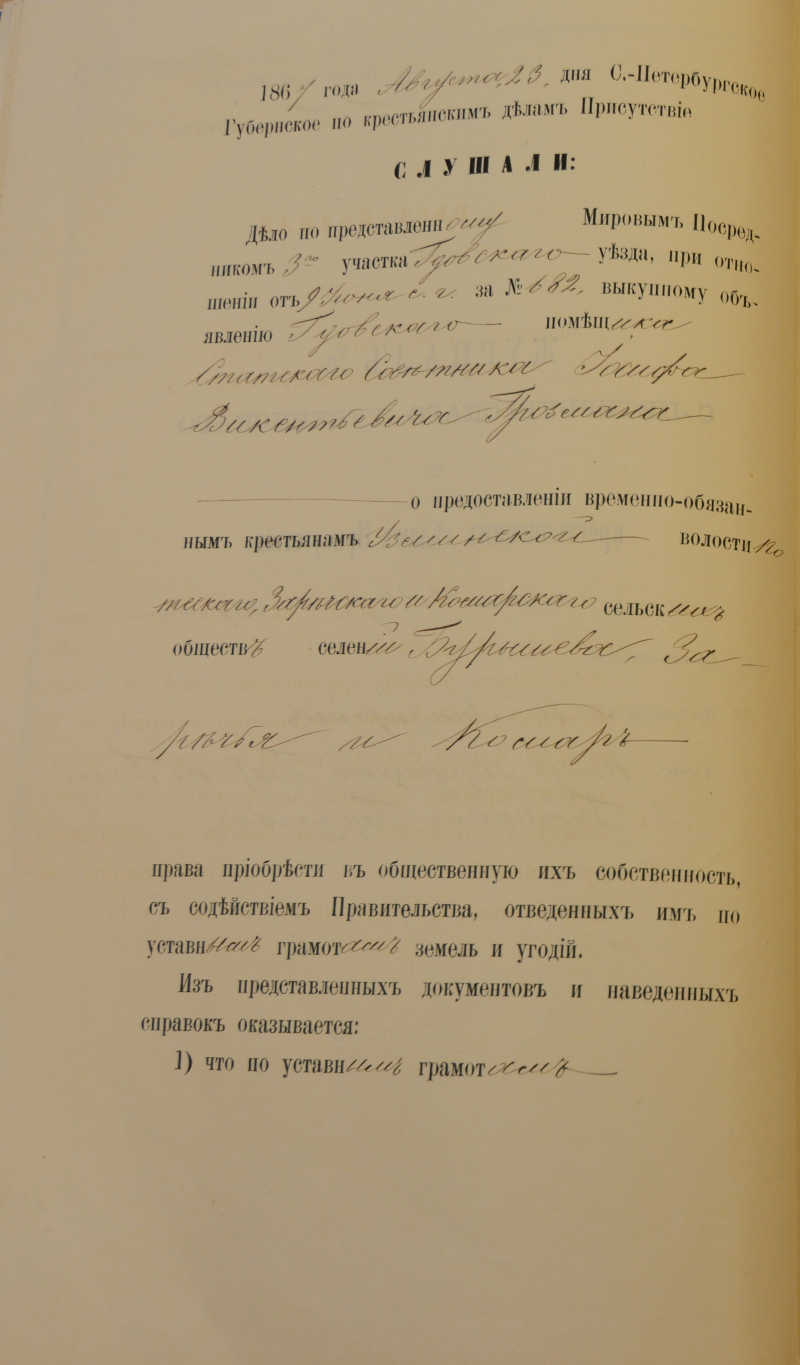 186 года Августа 23 дня С.-Петербургское
Губернское по крестьянскимъ дѣламъ Присутствіе
СЛУШАЛИ:
Дѣло по представленному Мировымъ Посред-
никомъ 3го участка Гдовскаго уѣзда, при отно-
шеніи отъ 9 Юня с. г. за № 682, выкупному объ-
явленію Гдовскаго помѣщика
Статскаго Совѣтника Іосифа
Викентьевича
о предоставленіи временно-обязан-
нымъ крестьянамъ волости
Зарѣцкаго и Комарскаго сельскихъ
обществъ селеній За
рѣчья и Комаръ
права пріобрѣсти въ общественную ихъ собственность,
съ содѣйствіемъ Правительства, отведенныхъ имъ по
уставнымъ грамотамъ земель и угодій.
Изъ представленныхъ документовъ и наведенныхъ
справокъ оказывается:
1) что по уставнымъ грамотамъ